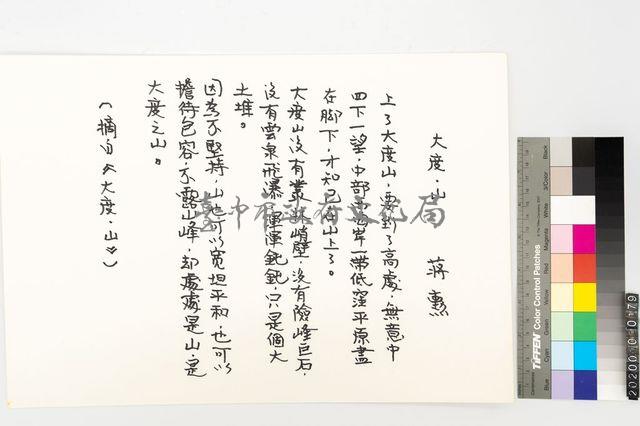 大度・山 蔣勳
上了大度山，要到了高處，無意中
四下一望，中部海岸一帶低窪平原盡
在腳下，才知已在山上了。
大度山沒有叢林峭壁，沒有險峰巨石，
沒有雲泉飛瀑，渾渾鈍鈍，只是個大
土堆。
因為不堅持，山也可以寬坦平和，也可以
擔待包容，不露山峰，卻處處是山，是
大度之山。
（摘自《大度・山》）
臺中市政府文化局
TIFFEN Color Control Patches
Blue
Cyan
Green
Yellow
Red
Magenta
White
3/Color
Black